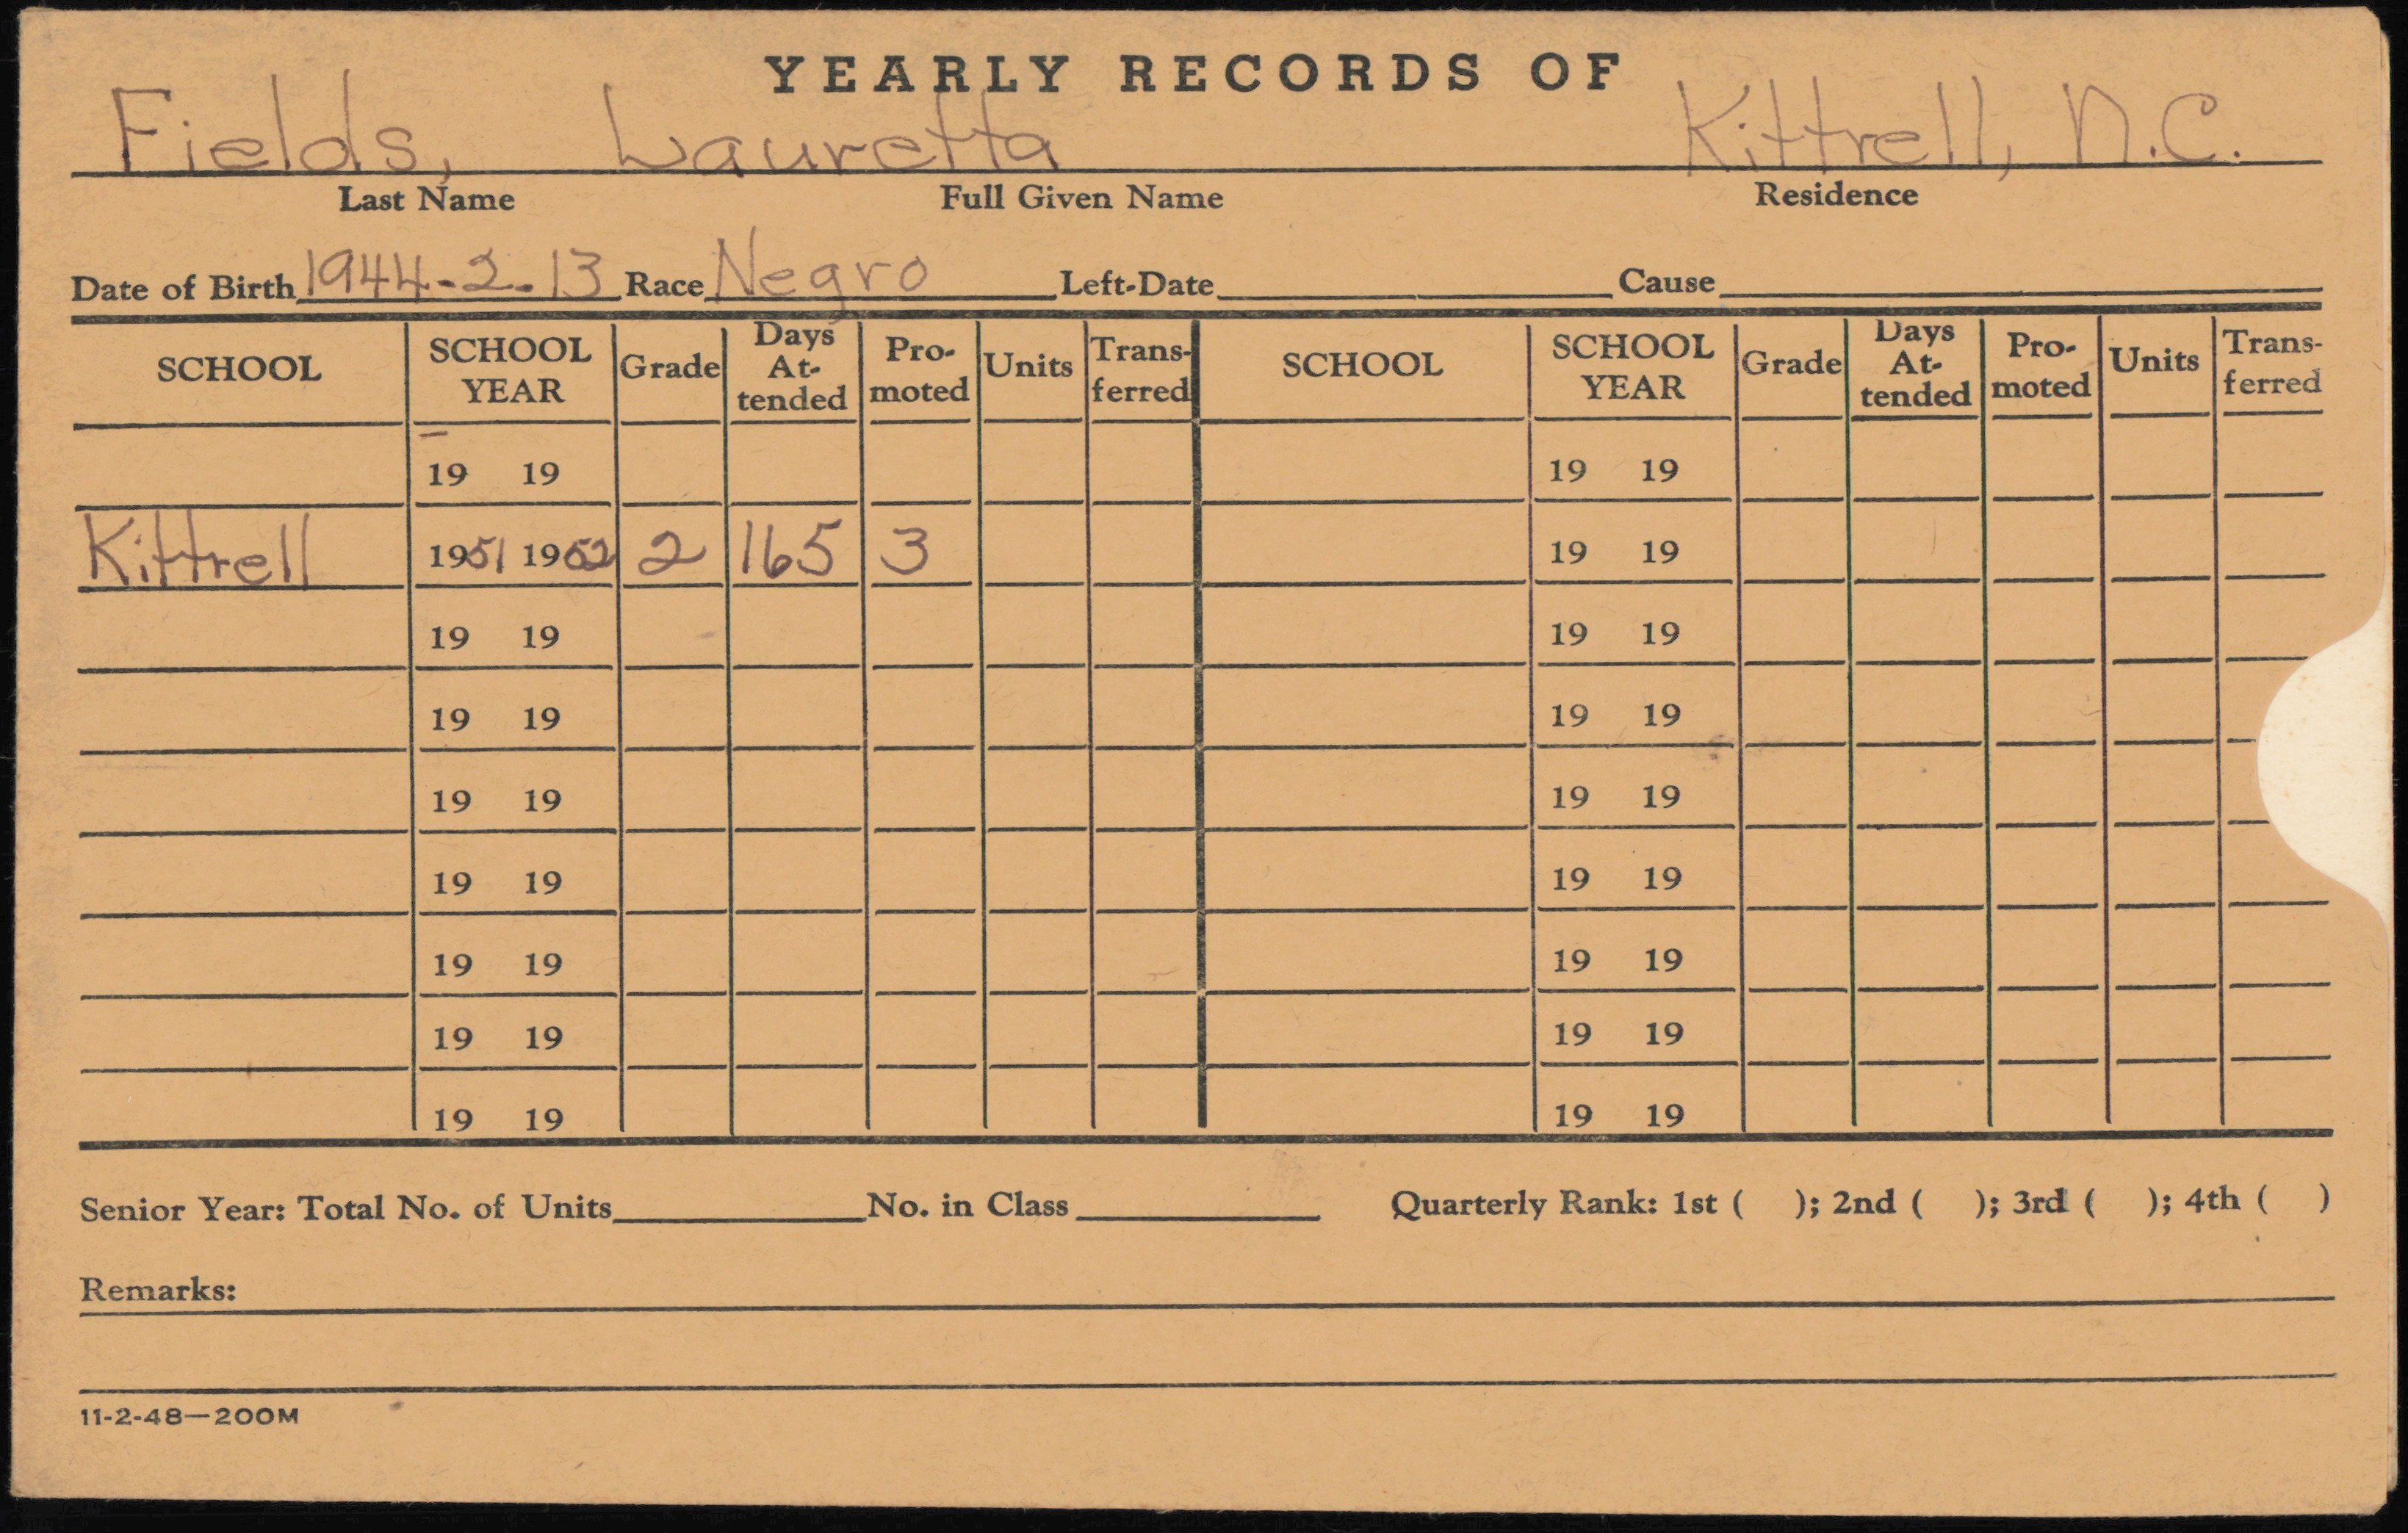 YEARLY RECORDS OF
Fields, Lauretta Kittrell, N.C.
Last Name Full Given Name Residence
Date of Birth 1944-2-13 Race Negro Left-Date Cause
SCHOOL SCHOOL YEAR Grade Days At-tended Pro-moted Units Trans-ferred SCHOOL SCHOOL YEAR Grade Days At-tended Pro-moted Units Trans-ferred
19 19 19 19
Kittrell 1951 1952 2 165 3 19 19
19 19 19 19
19 19 19 19
19 19 19 19
19 19 19 19
19 19 19 19
19 19 19 19
19 19 19 19
Senior Year: Total No. of Units No. in Class Quarterly Rank: 1st ( ); 2nd ( ); 3rd ( ); 4th ( )
Remarks:
11-2-48—200M